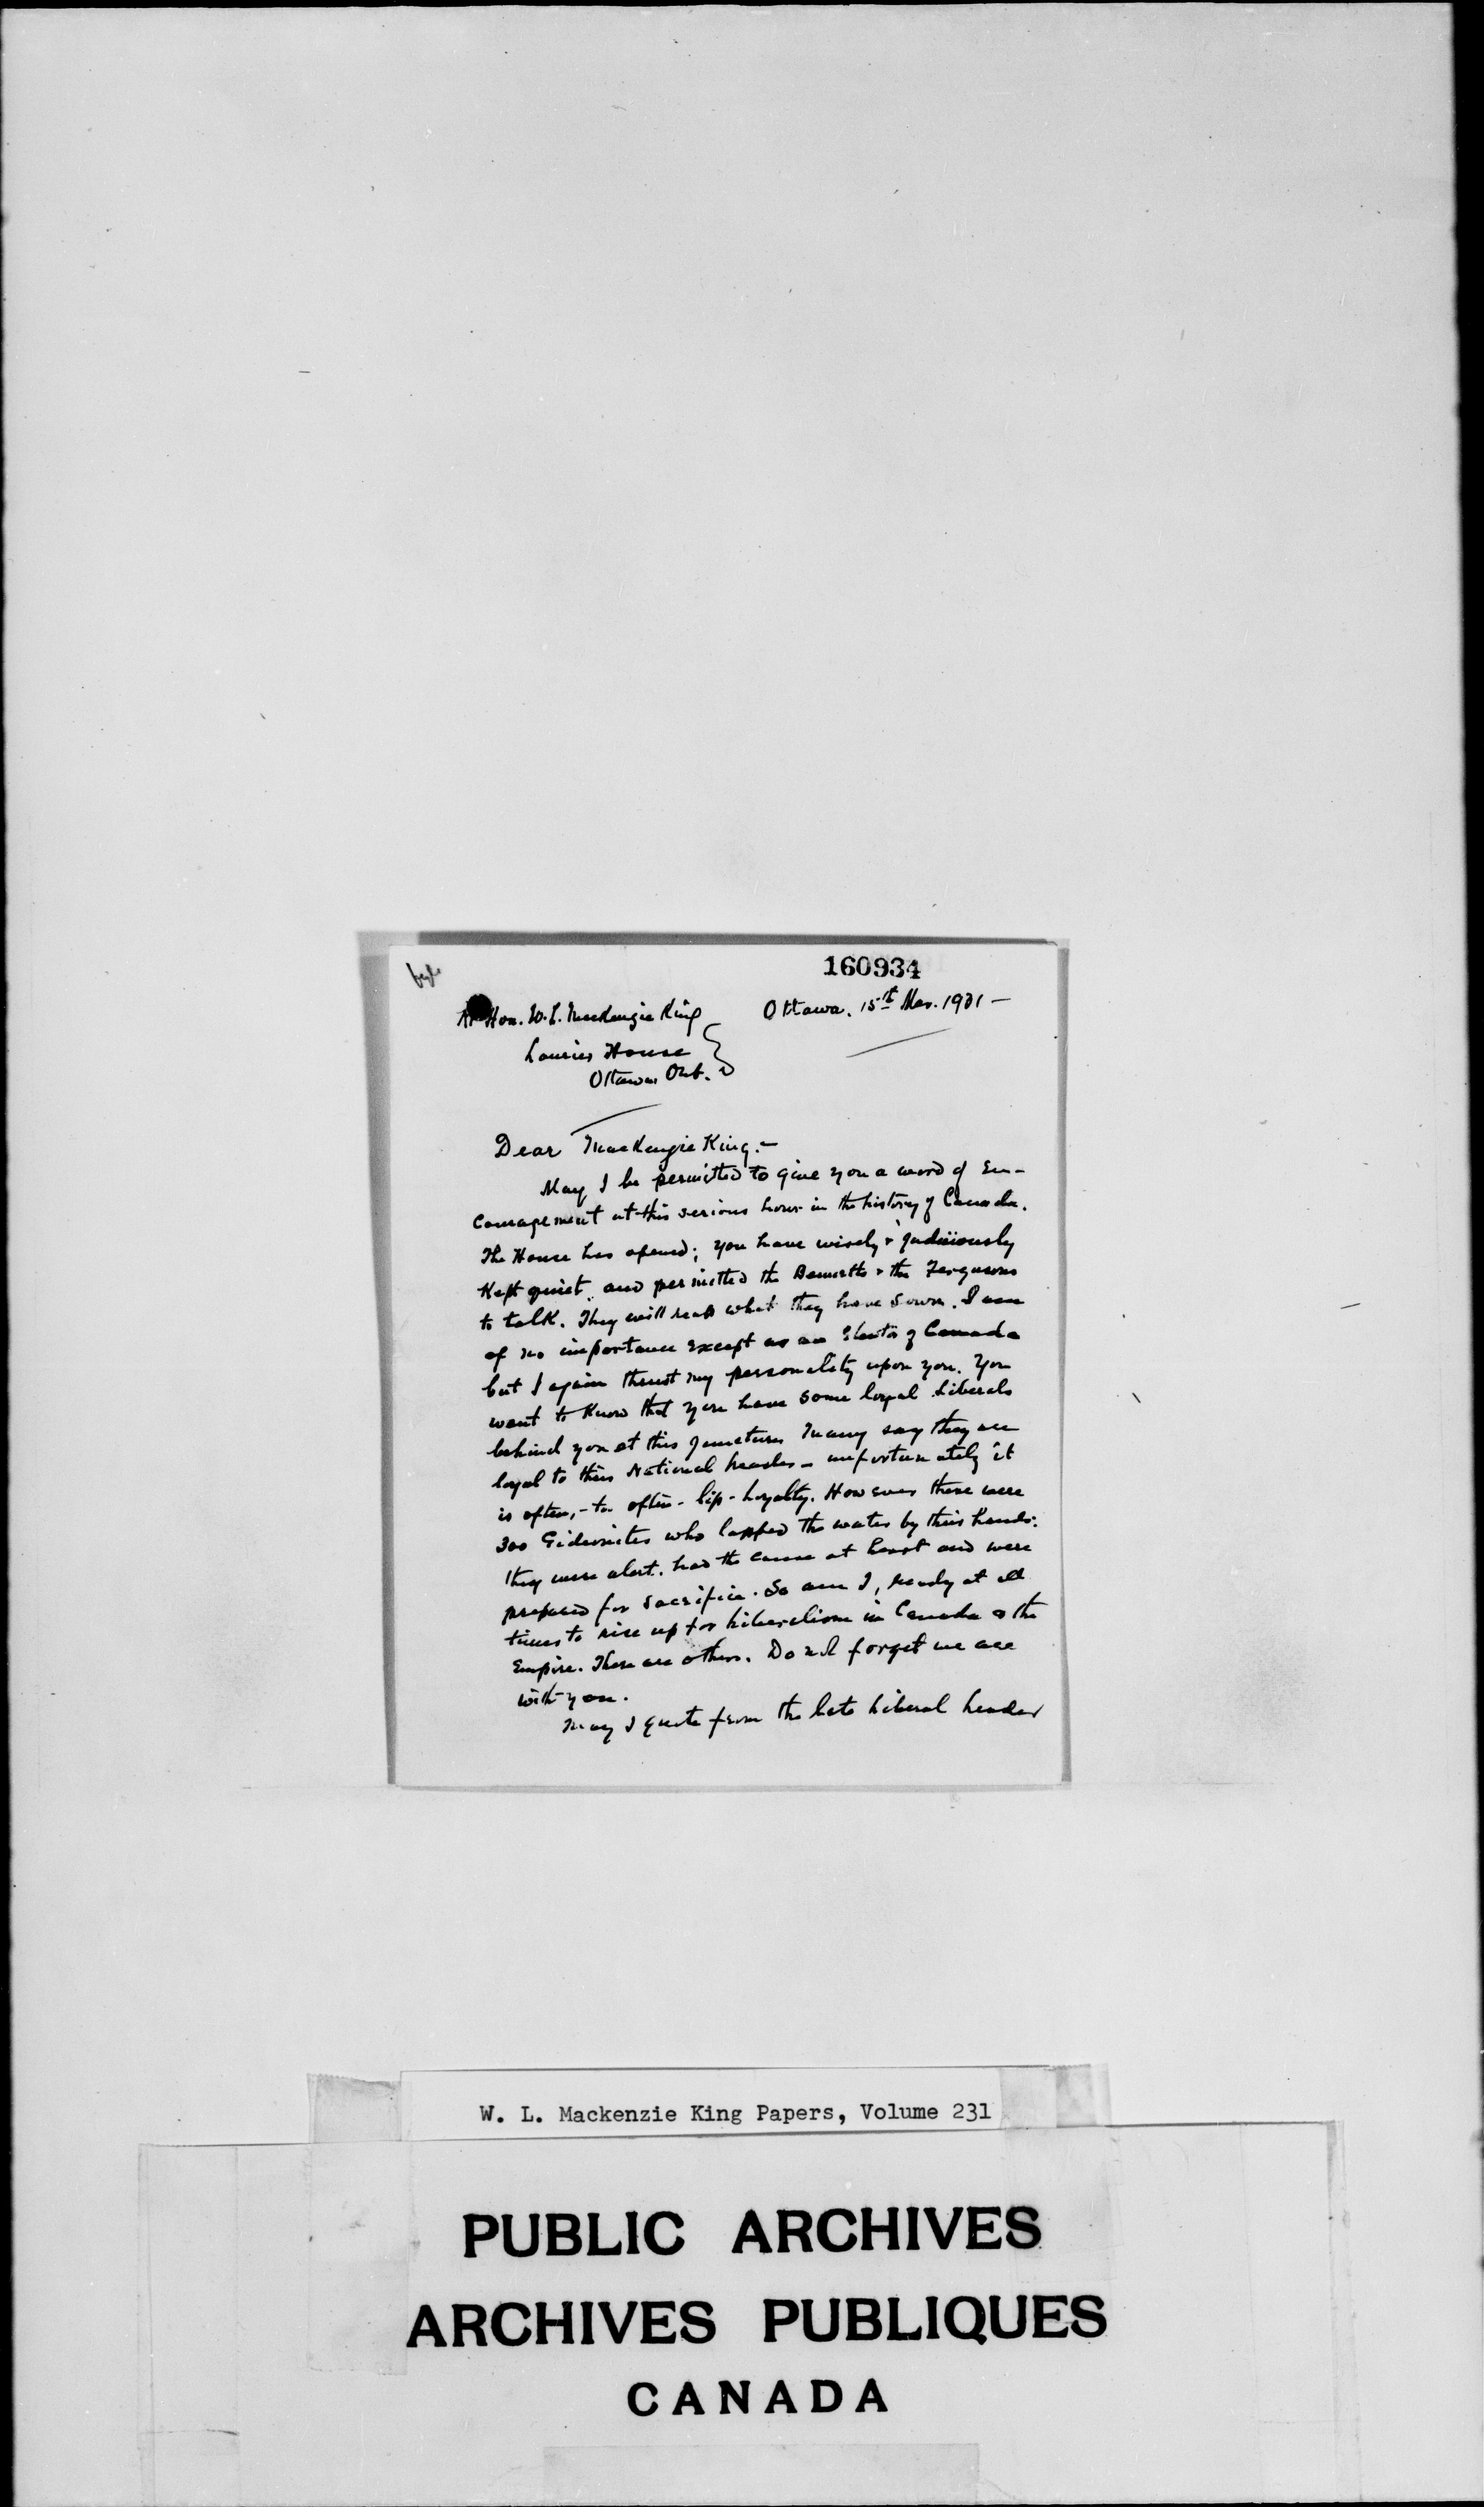 160934
Rt Hon. W. L. MacKenzie King
Ottawa, 15th Mar. 1931 —
Laurier House
Ottawa Ont.
Dear MacKenzie King:—
May I be permitted to give you a word of en-
couragement at this serious hour in the history of Canada.
The House has opened; you have wisely & judiciously
Kept quiet and permitted the Bennetts & the Fergusons
to talk. They will reap what they have sown. I am
of no importance except as an Elector of Canada
but I again thrust my personality upon you. You
want to Know that you have some loyal Liberals
behind you at this juncture. Many say they are
loyal to their National Leader — unfortunately it
is often, - too often - lip-loyalty. However there were
300 Gideonites who lapped the water by their hands:
they were alert, had the cause at heart and were
prepared for sacrifice. So am I, ready at all
times to rise up for Liberalism in Canada & the
Empire. There are others. Do not forget we are
with you.
May I quote from the late Liberal Leader
W. L. Mackenzie King Papers, Volume 231
PUBLIC ARCHIVES
ARCHIVES PUBLIQUES
CANADA